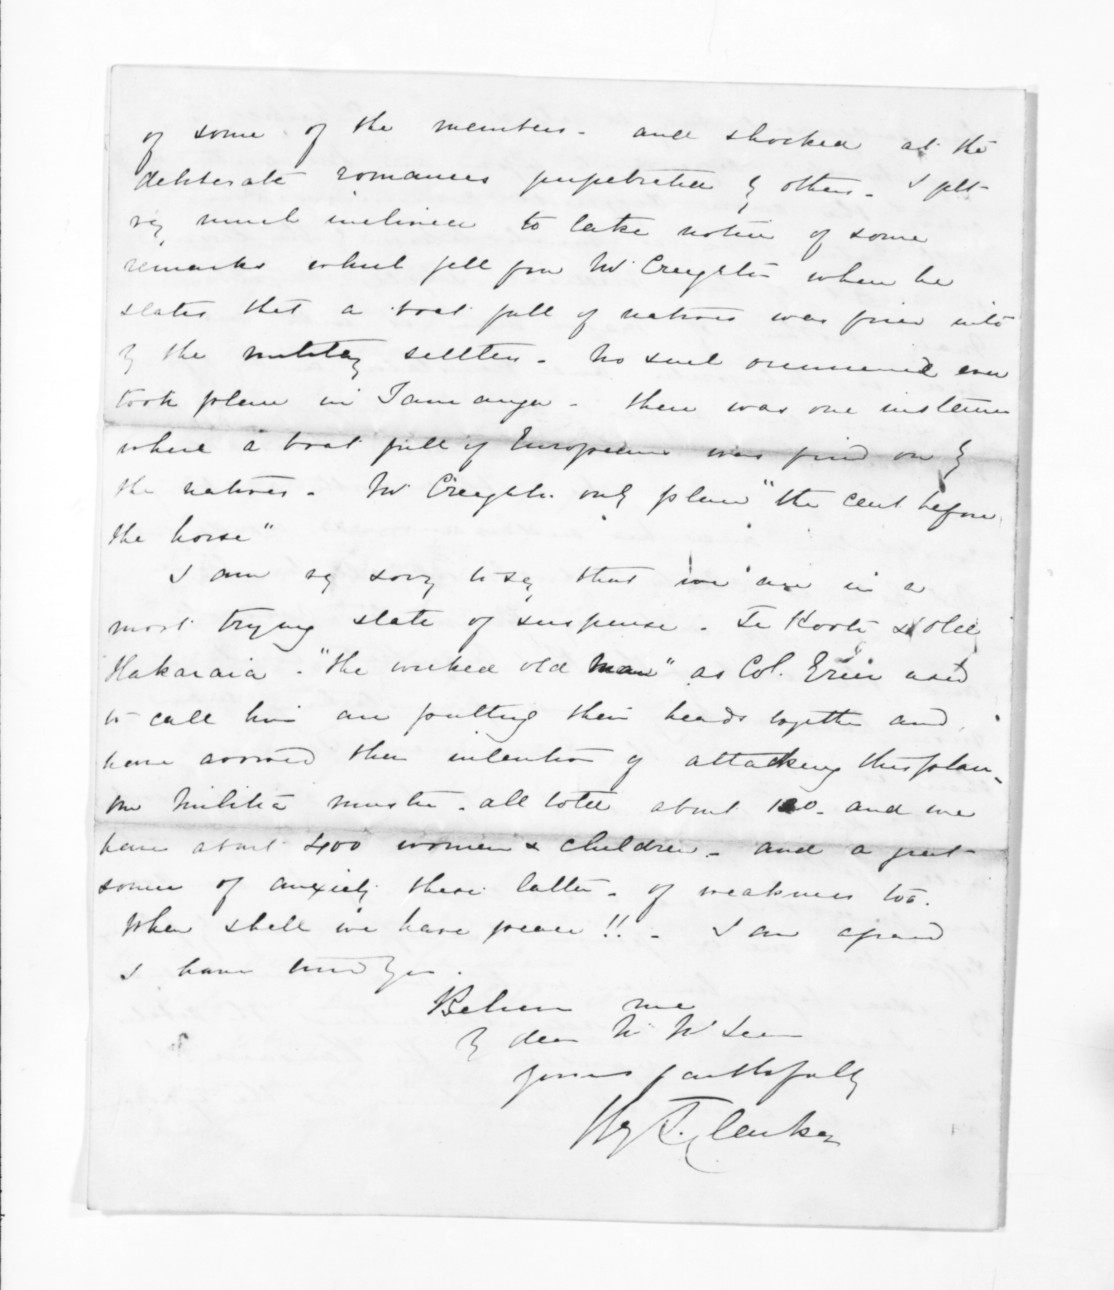 of some of the members - and shocked at the
deliberate romances perpetrated by others - I felt
very much inclined to take notice of some
remarks which fell from Mr Creighton when he
states that a boat full of natives was fired into
by the military settlers - No such occurrence ever
took place in Tauranga - there was one instance
where a boat full of Europeans was fired on by
the natives - Mr Creighton only places "the cart before
the horse"
I am very sorry to say that we are in a
most trying state of suspense - Te Kooti & old
Hakaraia - "the wicked old man" as Col. Greer used
to call him are putting their heads together and
have avowed their intention of attacking this place -
our Militia muster - all told about and we
have about 400 women & children - and a great
source of anxiety these latter - of weakness too.
When shall we have peace!! - I am afraid
I have tired you.
Believe me
My dear Mr McLean
yours faithfully
Hy T. Clarke